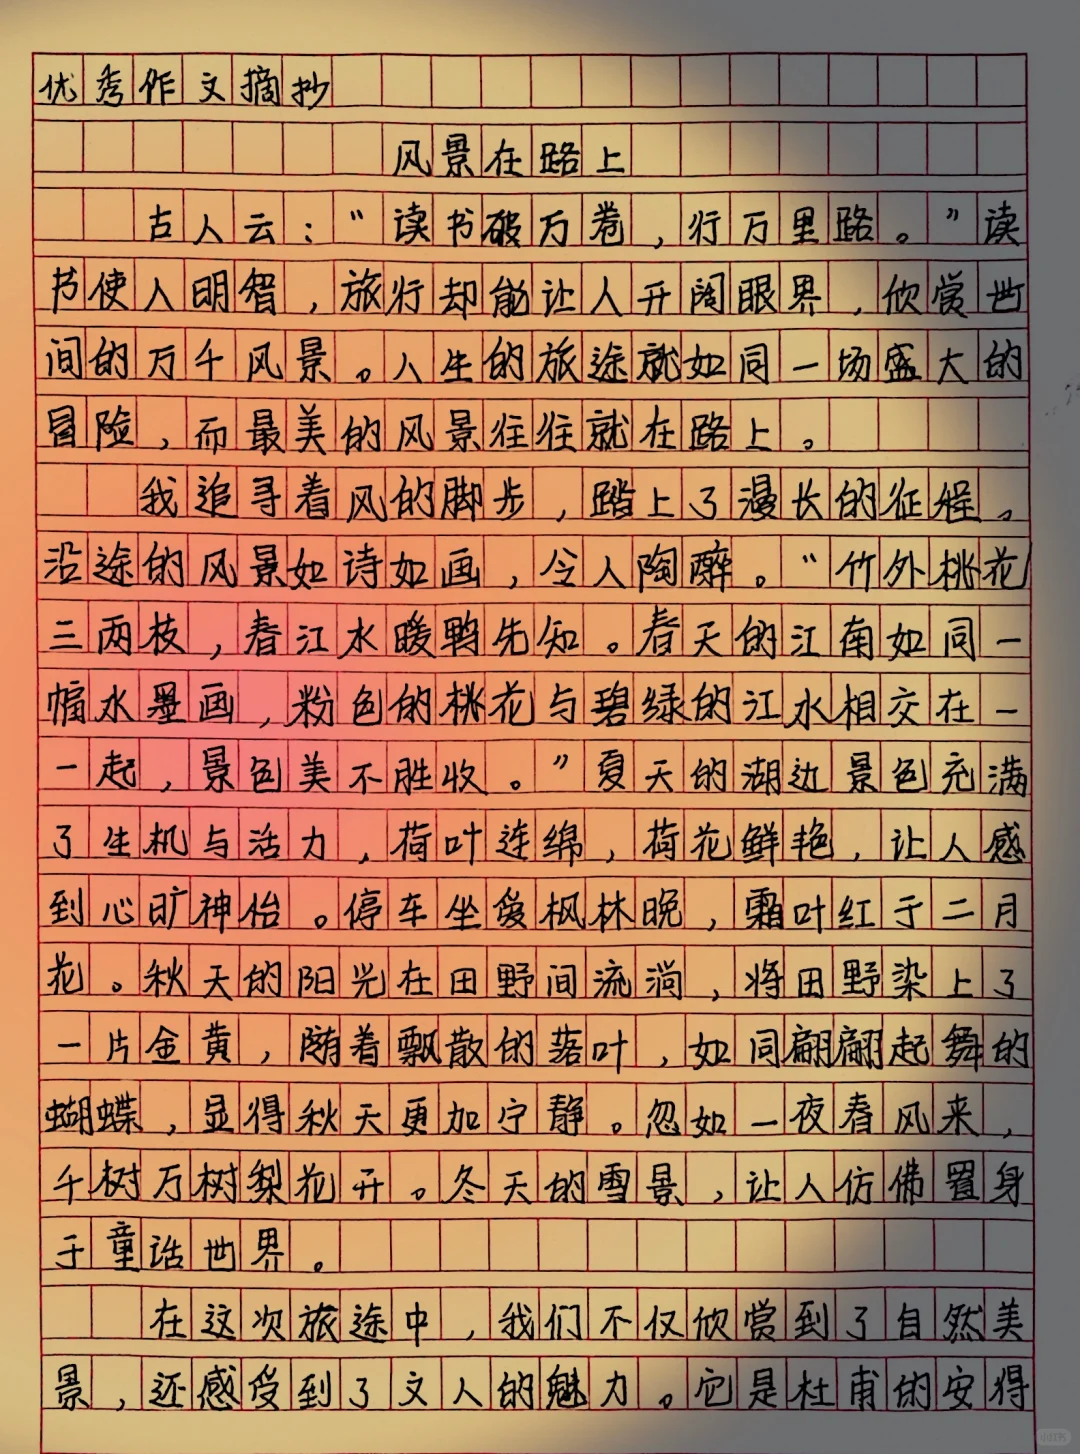 优秀作文摘抄
风景在路上
古人云：“读书破万卷，行万里路。”读
书使人明智，旅行却能让人开阔眼界，欣赏世
间的万千风景。人生的旅途就如同一场盛大的
冒险，而最美的风景往往就在路上。
我追寻着风的脚步，踏上了漫长的征程。
沿途的风景如诗如画，令人陶醉。“竹外桃花
三两枝，春江水暖鸭先知。春天的江南如同一
幅水墨画，粉色的桃花与碧绿的江水相交在一
一起，景色美不胜收。”夏天的湖边景色充满
了生机与活力，荷叶连绵，荷花鲜艳，让人感
到心旷神怡。停车坐爱枫林晚，霜叶红于二月
花。秋天的阳光在田野间流淌，将田野染上了
一片金黄，随着飘散的落叶，如同翩翩起舞的
蝴蝶，显得秋天更加宁静。忽如一夜春风来，
千树万树梨花开。冬天的雪景，让人仿佛置身
于童话世界。
在这次旅途中，我们不仅欣赏到了自然美
景，还感受到了文人的魅力。它是杜甫的安得
小红书